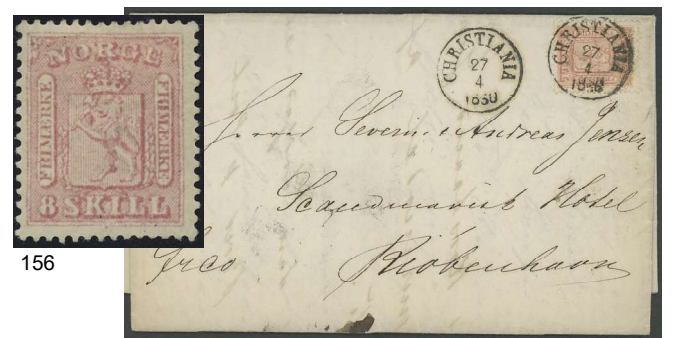 NORGE
FRIMERKE
FRIMERKE
8 SKILL
156
CHRISTIANIA
27
4
CHRISTIANIA
27
4
Herrer Severin & Andreas Jensen
Scandinavisk Hotel
frco
Kiöbenhavn